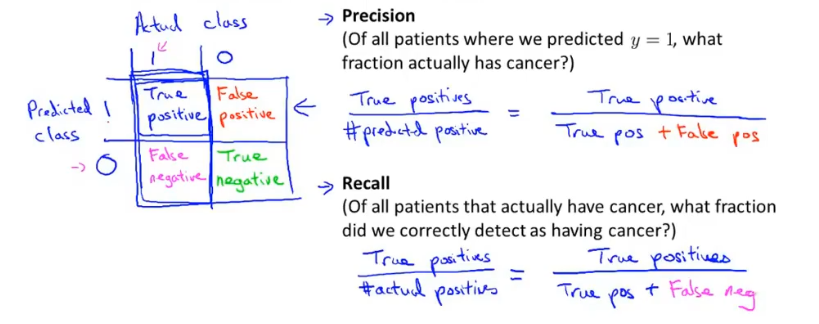 Actual class
1 0
Predicted 1
class
0
True
positive
False
positive
False
negative
True
negative
→ Precision
(Of all patients where we predicted y = 1, what
fraction actually has cancer?)
True positives
#predicted positive
=
True positive
True pos + False pos
→ Recall
(Of all patients that actually have cancer, what fraction
did we correctly detect as having cancer?)
True positives
#actual positives
=
True positives
True pos + False neg